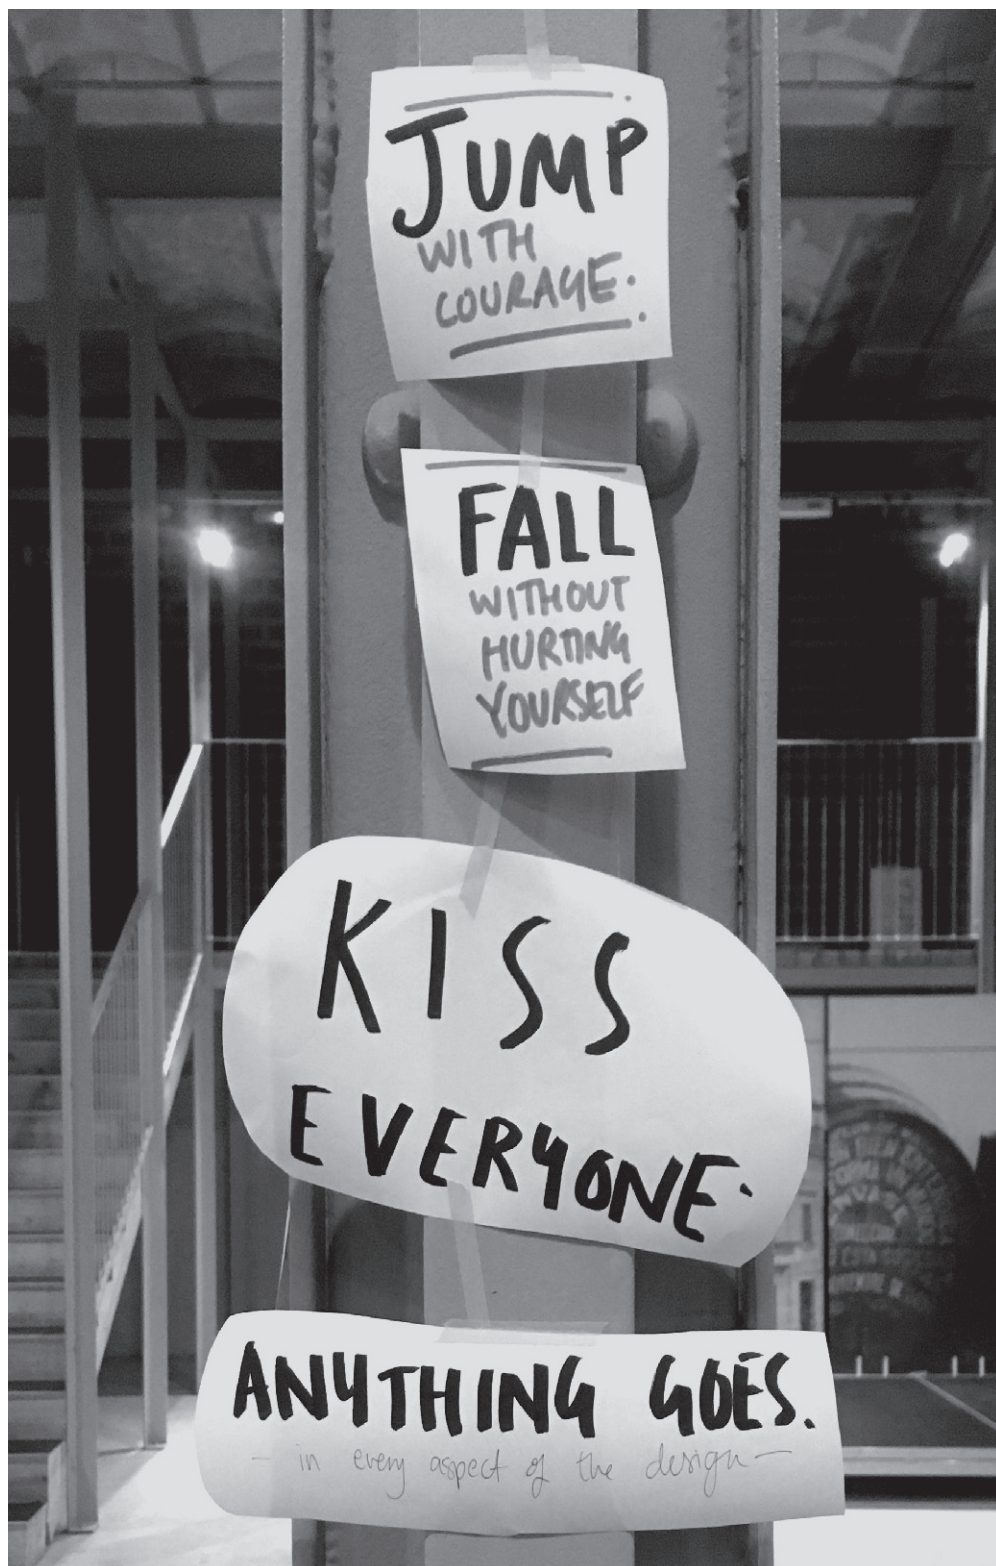 JUMP
WITH
COURAGE.
FALL
WITHOUT
HURTING
YOURSELF
KISS
EVERYONE.
ANYTHING GOES.
- in every aspect of the design -